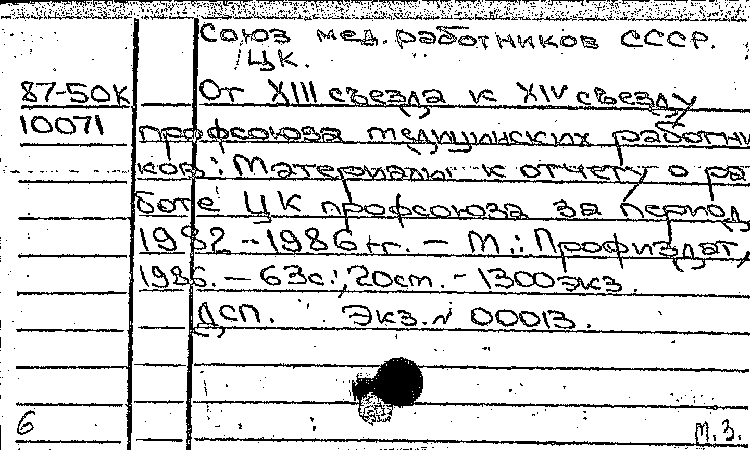 Союз мед. работников СССР.
ЦК.
87-50К От XIII съезда к XIV съезду
10071 профсоюза медицинских работни
ков: Материалы к отчету о ра
боте ЦК профсоюза за период
1982-1986 гг. - М.: Профиздат,
1986. - 63с.; 20см. - 1300экз.
ДСП. Экз. № 00013.
6 М.З.